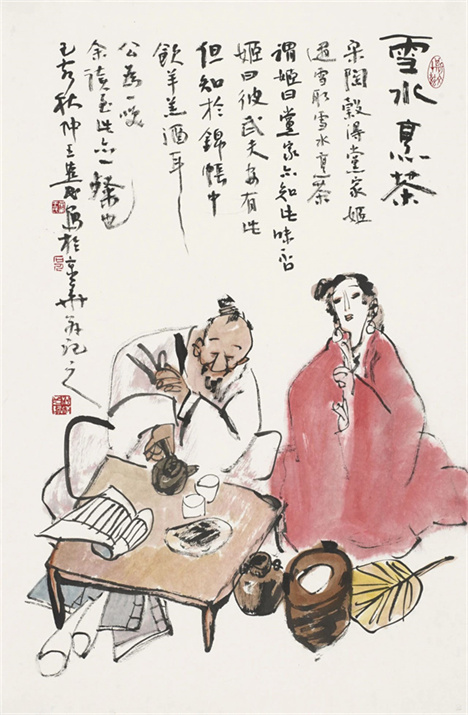 雪水烹茶
宋陶穀得黨家姬
遇雪取雪水烹茶
謂姬曰黨家亦知此味否
姬曰彼武夫安有此
但知於錦帳中
飲羊羔酒耳
公為一笑
余讀至此亦一粲也
秋仲王寫於京華并記之